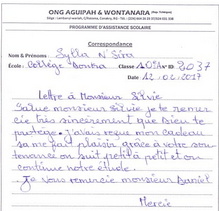 ONG AGUIPAH & WONTANARA
PROGRAMME D'ASSISTANCE SCOLAIRE
Correspondance
Nom & Prénoms: Sylla N'Sira
Ecole: Collège Bonfra Classe A N° ID 2037
Date 12.04.2017
Lettre à Monsieur Silvie
Salue monsieur silvie je te remer
cie très sincèrement que Dieu te
protège. j'avais reçus mon cadeau
sa me fait plaisir grâce à votre sou
tenance on suit petit à petit et on
continue notre étude.
Je vous remercie monsieur Daniel
Mercie